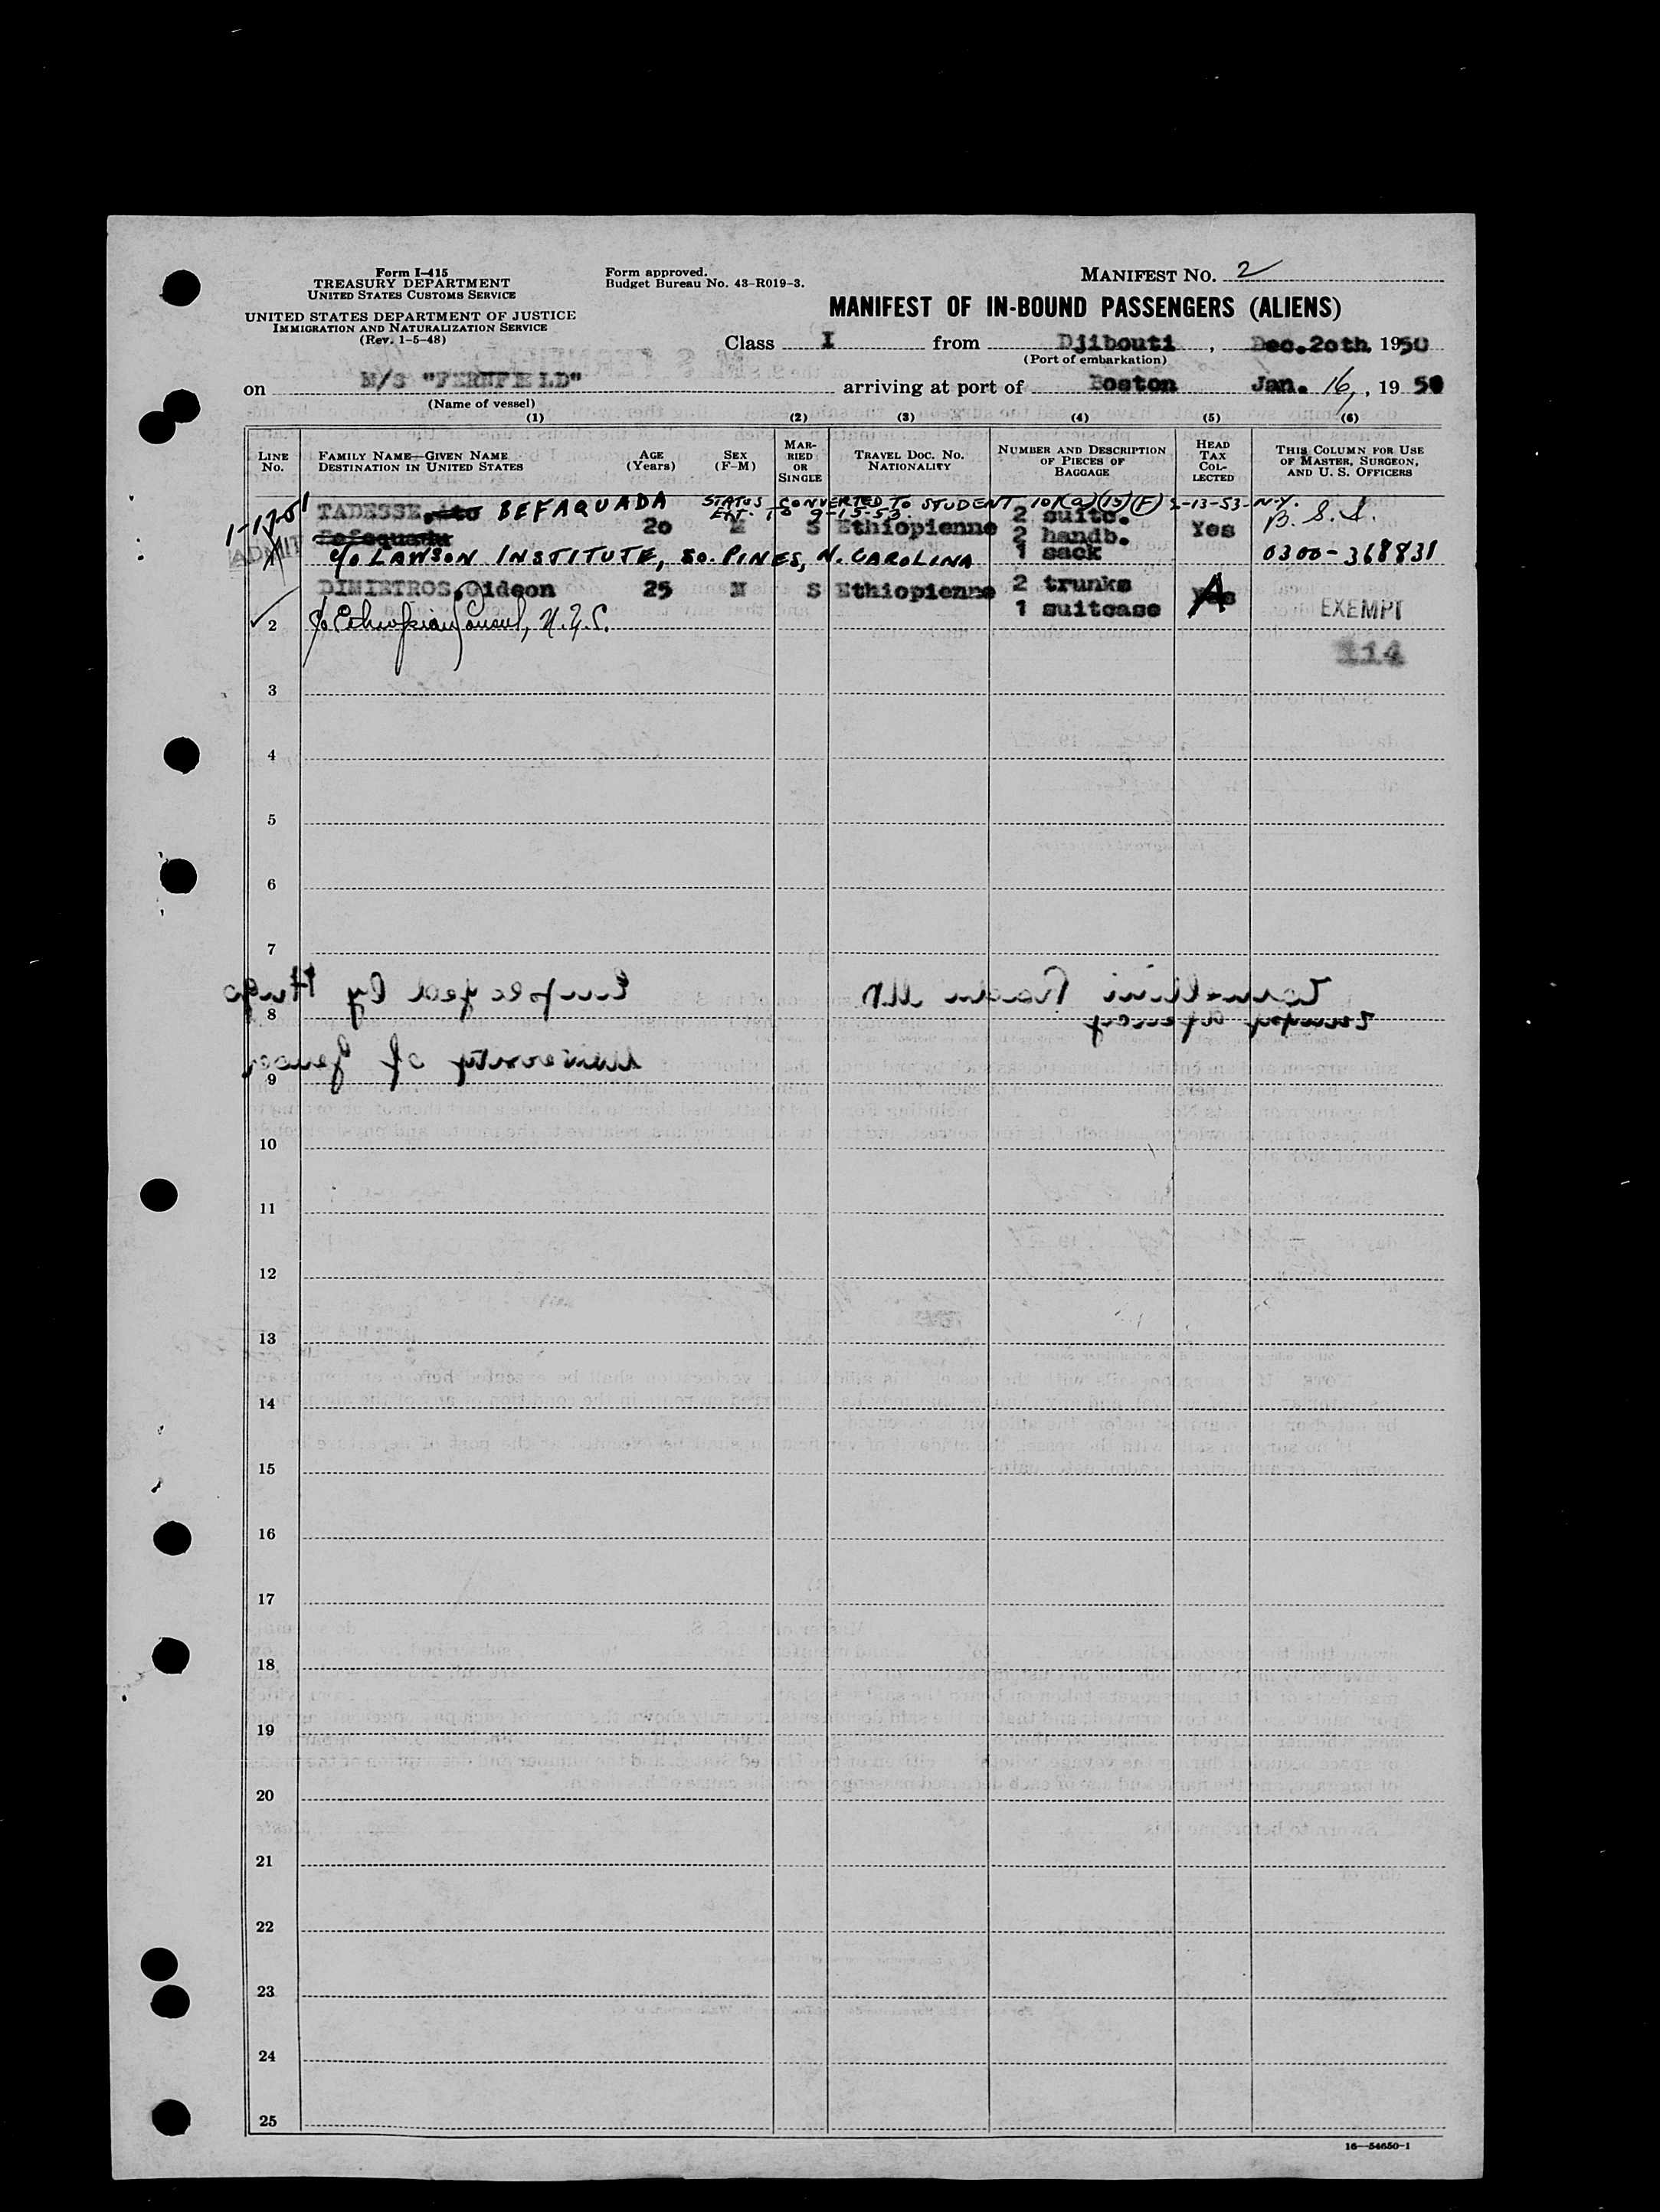 Form I-415
TREASURY DEPARTMENT
UNITED STATES CUSTOMS SERVICE
UNITED STATES DEPARTMENT OF JUSTICE
IMMIGRATION AND NATURALIZATION SERVICE
(Rev. 1-5-48)
Form approved.
Budget Bureau No. 43-R019-3.
MANIFEST NO. 2
MANIFEST OF IN-BOUND PASSENGERS (ALIENS)
Class I from Djibouti , Dec.20th 1950
(Port of embarkation)
on M/S "FERNFIELD" arriving at port of Boston Jan. 16, , 19 50
(Name of vessel)
(1) (2) (3) (4) (5) (6)
LINE NO.
FAMILY NAME—GIVEN NAME
DESTINATION IN UNITED STATES
AGE (Years)
SEX (F-M)
MARRIED OR SINGLE
TRAVEL DOC. NO. NATIONALITY
NUMBER AND DESCRIPTION OF PIECES OF BAGGAGE
HEAD TAX COLLECTED
THIS COLUMN FOR USE OF MASTER, SURGEON, AND U. S. OFFICERS
STATUS CONVERTED TO STUDENT 101(a)(15)(F) 2-13-53-N.Y.
EXT. TO 9-15-53.
1-17-51 TADESSE, BEFAQUADA B. S. I.
ADMIT Befaquada 20 M S Ethiopienne 2 suitc. 2 handb. 1 sack Yes
c/o LAWSON INSTITUTE, SO. PINES, N. CAROLINA 0300-368831
DIMIETROS, Gideon 25 M S Ethiopienne 2 trunks 1 suitcase Yes A EXEMPT
2 c/o Ethiopian Consul, N.Y.C.
114
3
4
5
6
7
8
9
10
11
12
13
14
15
16
17
18
19
20
21
22
23
24
25
16—54650-1